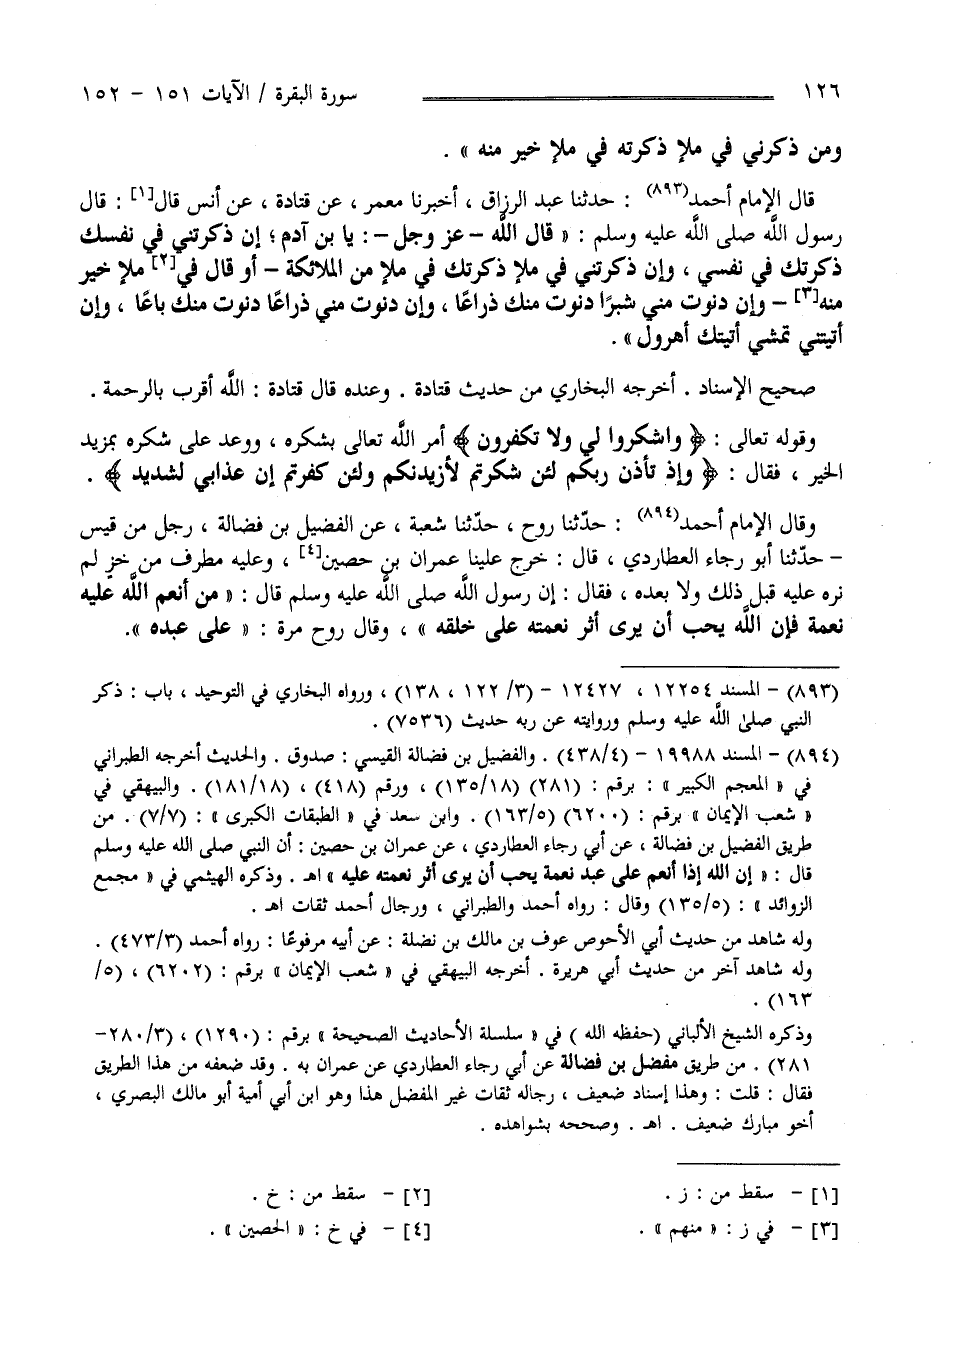 ١٢٦ سورة البقرة / الآيات ١٥١ - ١٥٢
ومن ذكرني في ملإ ذكرته في ملإ خير منه » .
قال الإمام أحمد(٨٩٣) : حدثنا عبد الرزاق ، أخبرنا معمر ، عن قتادة ، عن أنس قال[١] : قال
رسول اللَّه صلى اللَّه عليه وسلم : « قال اللَّه - عز وجل -: يا بن آدم؛ إن ذكرتني في نفسك
ذكرتك في نفسي ، وإن ذكرتني في ملإ ذكرتك في ملإ من الملائكة - أو قال في[٢] ملإ خير
منه[٣] - وإن دنوت مني شبرًا دنوت منك ذراعًا ، وإن دنوت مني ذراعًا دنوت منك باعًا ، وإن
أتيتني تمشي أتيتك أهرول» .
صحيح الإسناد . أخرجه البخاري من حديث قتادة . وعنده قال قتادة : اللَّه أقرب بالرحمة .
وقوله تعالى : ﴿ واشكروا لي ولا تكفرون ﴾ أمر اللَّه تعالى بشكره ، ووعد على شكره بمزيد
الخير ، فقال : ﴿ وإذ تأذن ربكم لئن شكرتم لأزيدنكم ولئن كفرتم إن عذابي لشديد ﴾ .
وقال الإمام أحمد(٨٩٤) : حدّثنا روح ، حدّثنا شعبة ، عن الفضيل بن فضالة ، رجل من قيس
- حدّثنا أبو رجاء العطاردي ، قال : خرج علينا عمران بن حصين[٤] ، وعليه مطرف من خزٍ لم
نره عليه قبل ذلك ولا بعده ، فقال : إن رسول اللَّه صلى اللَّه عليه وسلم قال : « من أنعم اللَّه عليه
نعمة فإن اللَّه يحب أن يرى أثر نعمته على خلقه » ، وقال روح مرة : « على عبده ».
(٨٩٣) - المسند ١٢٢٥٤ ، ١٢٤٢٧ - (٣/ ١٢٢ ، ١٣٨) ، ورواه البخاري في التوحيد ، باب : ذكر
النبي صلى اللَّه عليه وسلم وروايته عن ربه حديث (٧٥٣٦) .
(٨٩٤) - المسند ١٩٩٨٨ - (٤٣٨/٤) . والفضيل بن فضالة القيسي : صدوق . والحديث أخرجه الطبراني
في « المعجم الكبير » : برقم : (٢٨١) (١٣٥/١٨) ، ورقم (٤١٨) ، (١٨١/١٨) . والبيهقي في
« شعب الإيمان » برقم : (٦٢٠٠) (١٦٣/٥) . وابن سعد في « الطبقات الكبرى » : (٧/٧) . من
طريق الفضيل بن فضالة ، عن أبي رجاء العطاردي ، عن عمران بن حصين : أن النبي صلى الله عليه وسلم
قال : « إن الله إذا أنعم على عبد نعمة يحب أن يرى أثر نعمته عليه » اهـ . وذكره الهيثمي في « مجمع
الزوائد » : (١٣٥/٥) وقال : رواه أحمد والطبراني ، ورجال أحمد ثقات اهـ .
وله شاهد من حديث أبي الأحوص عوف بن مالك بن نضلة : عن أبيه مرفوعًا : رواه أحمد (٤٧٣/٣) .
وله شاهد آخر من حديث أبي هريرة . أخرجه البيهقي في « شعب الإيمان » برقم : (٦٢٠٢) ، (٥/
١٦٣) .
وذكره الشيخ الألباني (حفظه الله ) في « سلسلة الأحاديث الصحيحة » برقم : (١٢٩٠) ، (٢٨٠/٣-
٢٨١) . من طريق مفضل بن فضالة عن أبي رجاء العطاردي عن عمران به . وقد ضعفه من هذا الطريق
فقال : قلت : وهذا إسناد ضعيف ، رجاله ثقات غير المفضل هذا وهو ابن أبي أمية أبو مالك البصري ،
أخو مبارك ضعيف . اهـ . وصححه بشواهده .
[١] - سقط من : ز . [٢] - سقط من : خ .
[٣] - في ز : « منهم » . [٤] - في خ : « الحصين » .